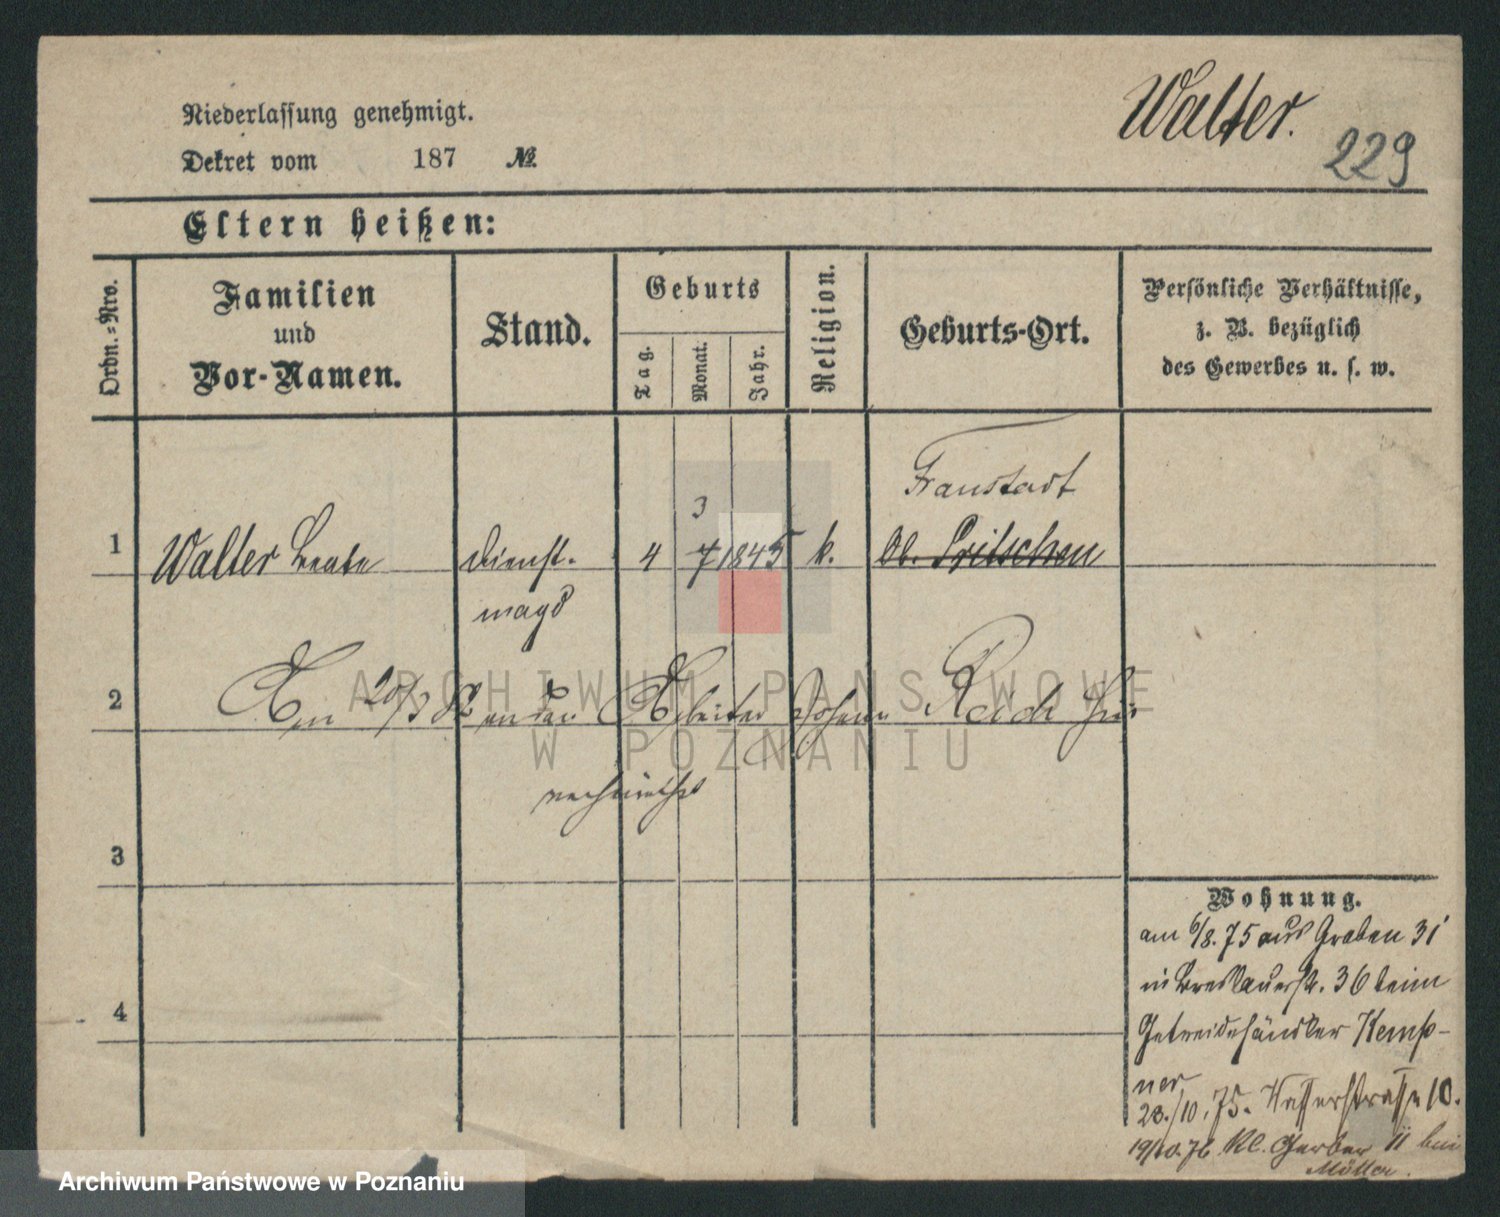 Walter.
229
Niederlassung genehmigt.
Dekret vom 187 No.
Eltern heißen:
Ordn.-Nro.
Familien
und
Vor-Namen.
Stand.
Geburts
Tag.
Monat.
Jahr.
Religion.
Geburts-Ort.
Persönliche Verhältnisse,
z. B. bezüglich
des Gewerbes u. s. w.
Fraustadt
3
1 Walter Beate Dienst- 4 7 1845 k. Ob. Pritschen
magd
2 Am 20/3 82 an den Arbeiter Johann Reich hier
verheirathet
3
4
Wohnung.
am 6/8. 75 aus Graben 31
in Breslauerstr. 36 beim
Getreidehändler Kemp-
ner
28./10. 75. Wasserstrasse 10.
19/10. 76 Kl. Gerber 11 bei
Möller.
ARCHIWUM PAŃSTWOWE
W POZNANIU
Archiwum Państwowe w Poznaniu